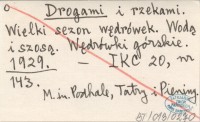 Drogami i rzekami.
Wielki sezon wędrówek. Wodą
i szosą. Wędrówki górskie.
1929. – IKC 20, nr
143.
M. in. Podhale, Tatry i Pieniny.